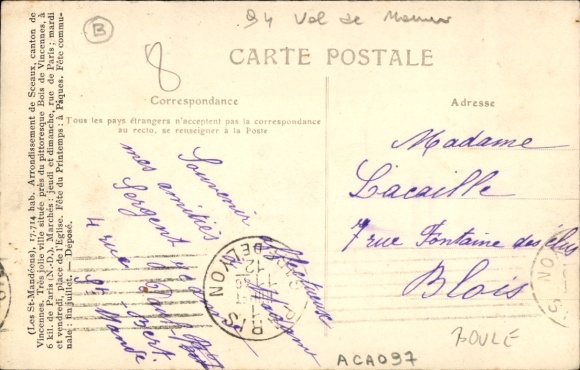 94 Val de Marne
B
8
CARTE POSTALE
Correspondance
Tous les pays étrangers n'acceptent pas la correspondance
au recto, se renseigner à la Poste
Adresse
(Les St-Mandéens), 17,714 hab. Arrondissement de Sceaux, canton de
Vincennes. Très jolie ville située près du pittoresque Bois de Vincennes, à
6 kil. de Paris (N.-D.). Marchés : jeudi et dimanche, rue de Paris ; mardi
et vendredi, place de l'Eglise. Fête du Printemps : à Pâques. Fête commu-
nale : fin juillet. — Déposé.
Souvenir affectueux
mes amitiés à Madame
Sergent
4 rue
St Mandé
PARIS
DE LYON
Madame
Lacaille
7 rue Fontaine des élus
Blois
ZOULÉ
ACA097